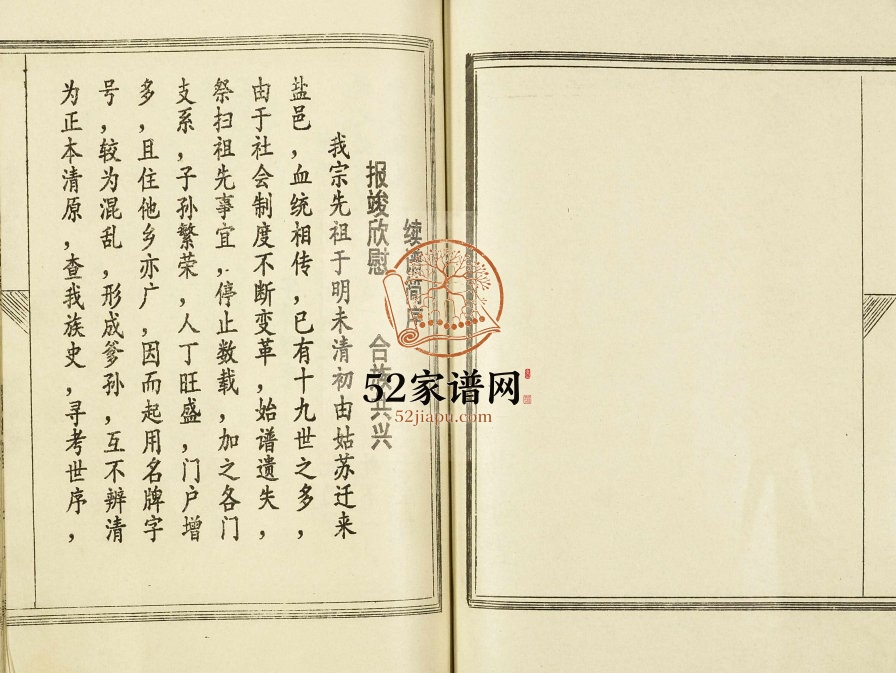 续谱简序
报竣欣慰 合族共兴
我宗先祖于明未清初由姑苏迁来
盐邑，血统相传，已有十九世之多，
由于社会制度不断变革，始谱遗失，
祭扫祖先事宜，停止数载，加之各门
支系，子孙繁荣，人丁旺盛，门户增
多，且住他乡亦广，因而起用名牌字
号，较为混乱，形成爹孙，互不辨清
为正本清原，查我族史，寻考世序，
52家谱网
52jiapu.com